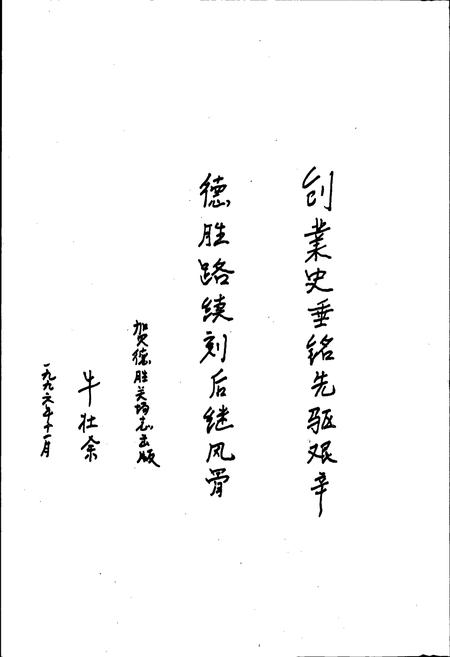 创業史垂铭先驱艰辛
德胜路续刻后继风骨
贺德胜关场志出版
牛壮余
一九九六年十一月